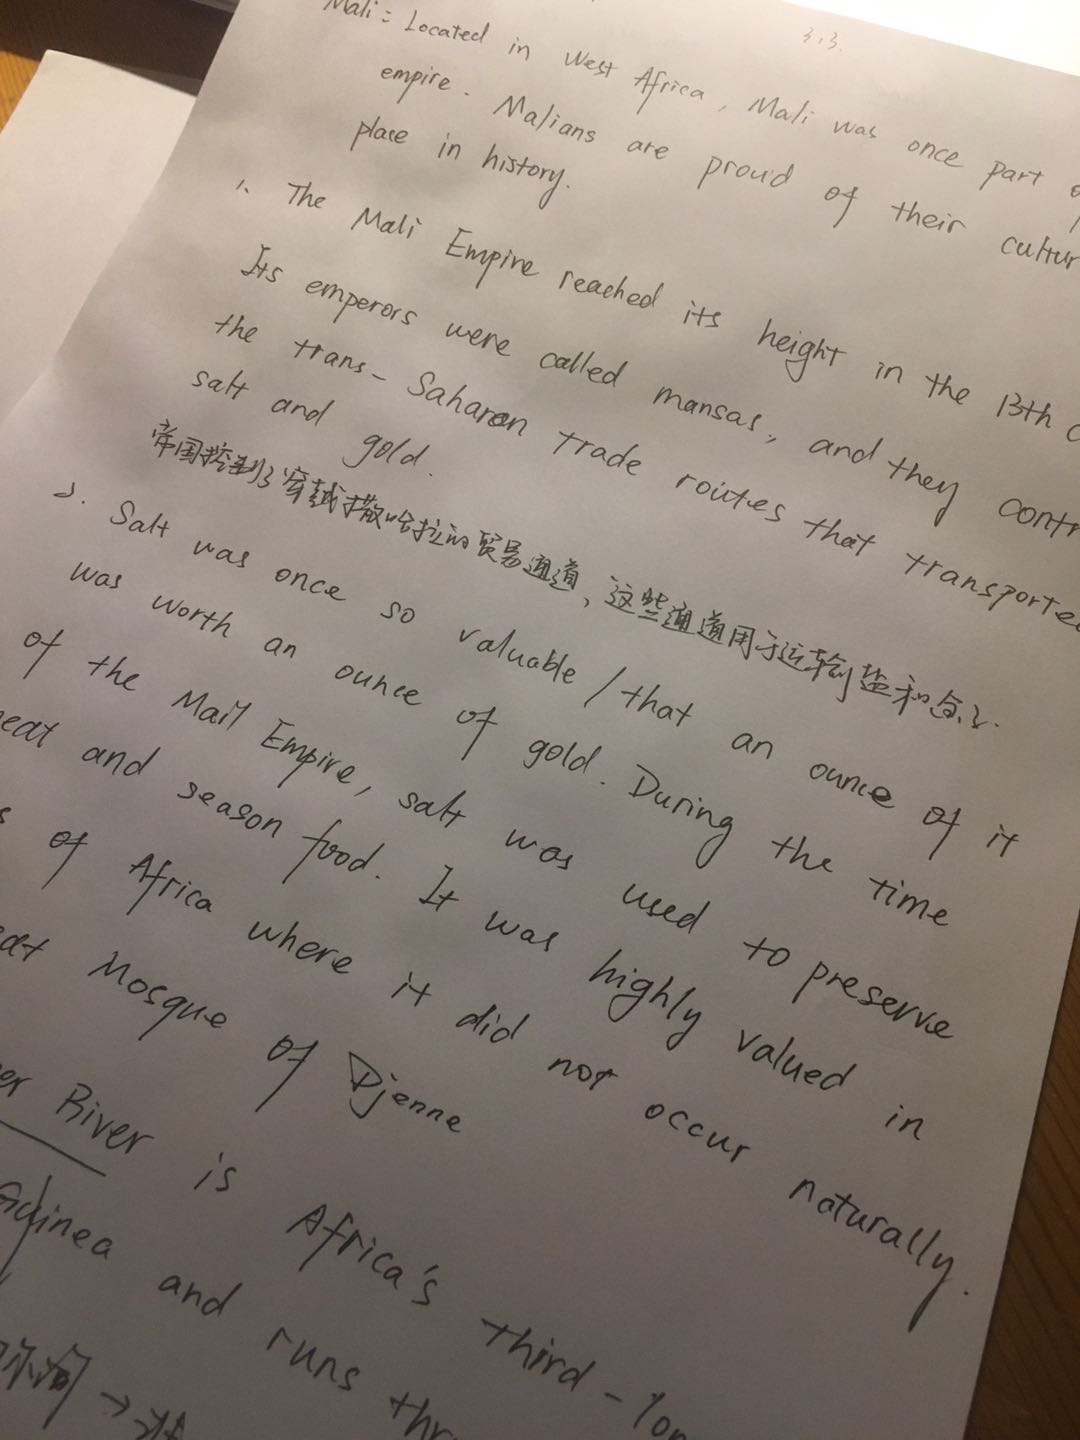 3.3.
Mali: Located in West Africa, Mali was once part
empire. Malians are proud of their cultur
place in history.
1. The Mali Empire reached its height in the 13th
Its emperors were called mansas, and they contr
the trans-Saharan trade routes that transported
salt and gold.
帝国控制了穿越撒哈拉的贸易通道，这些通道用于运输盐和金子.
2. Salt was once so valuable / that an ounce of it
was worth an ounce of gold. During the time
of the Mail Empire, salt was used to preserve
eat and season food. It was highly valued in
s of Africa where it did not occur naturally.
eat Mosque of Djenne
er River is Africa's third-lon
Guinea and runs thr